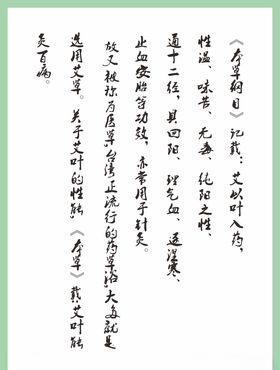 《本草纲目》记载：艾以叶入药，
性温、味苦、无毒、纯阳之性、
通十二经，具回阳、理气血、逐湿寒、
止血安胎等功效，亦常用于针灸。
故又被称为医草，台湾正流行的药草浴，大多就是
选用艾草。关于艾叶的性能，《本草》载：艾叶能
灸百病。